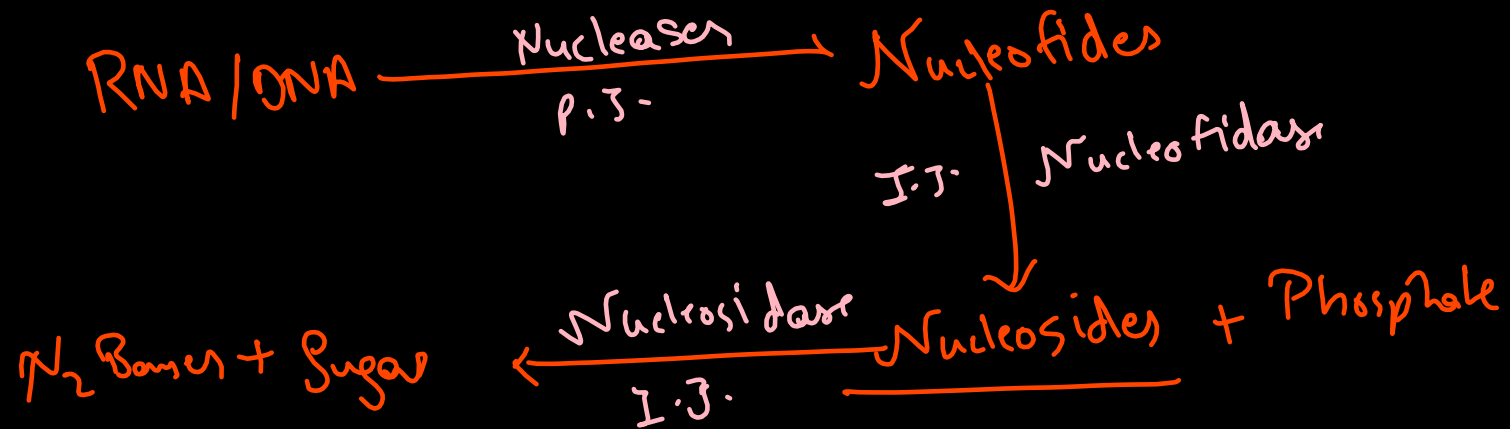 RNA/DNA Nucleases Nucleotides
P.J.
I.J. Nucleotidase
Nucleosides + Phosphate
Nucleosidase
I.J.
N₂ Bases + Sugar